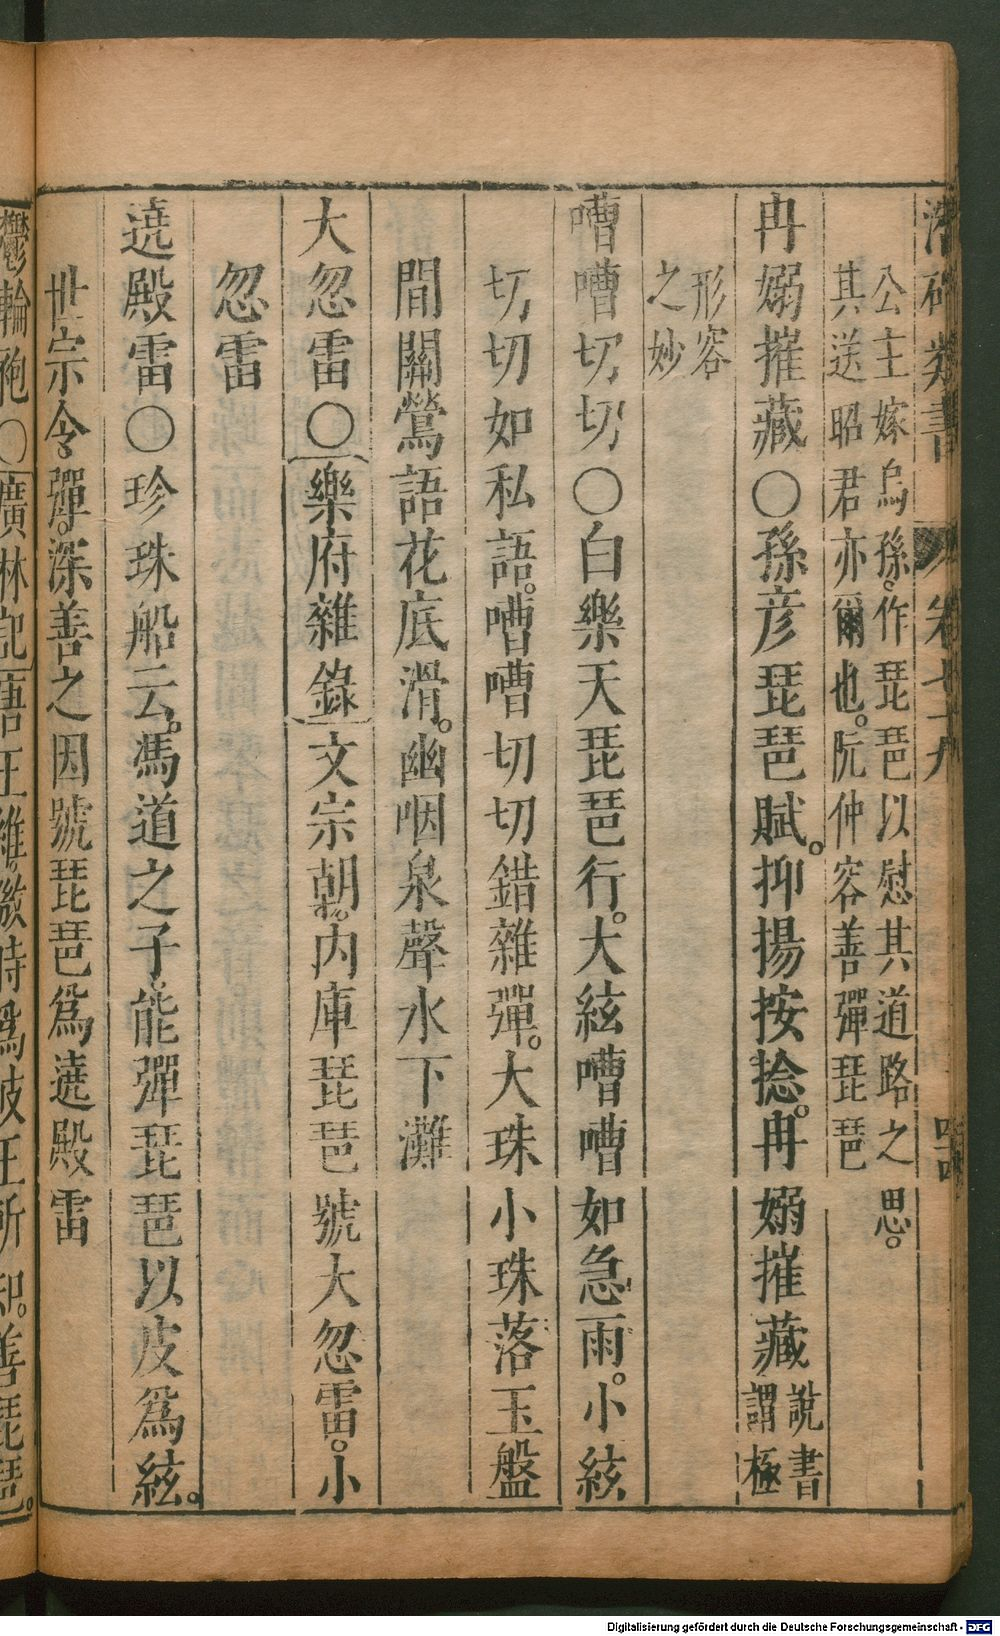 潛確類書 卷七十九 四十四
公主嫁烏孫。作琵琶以慰其道路之思。
其送昭君亦爾也。阮仲容善彈琵琶
冉嫋摧藏○孫彦琵琶賦。抑揚按捻。冉嫋摧藏說書
謂極
形容
之妙
嘈嘈切切○白樂天琵琶行。大絃嘈嘈如急雨。小絃
切切如私語。嘈嘈切切錯雜彈。大珠小珠落玉盤
間關鶯語花底滑。幽咽泉聲水下灘
大忽雷○樂府雜錄文宗朝。内庫琵琶號大忽雷。小
忽雷
遶殿雷○珍珠船云。馮道之子。能彈琵琶以皮爲絃。
世宗令彈。深善之因號琵琶爲遶殿雷
鬱輪袍○廣林記唐王維。微時爲岐王所知。善琵琶。
Digitalisierung gefördert durch die Deutsche Forschungsgemeinschaft - DFG